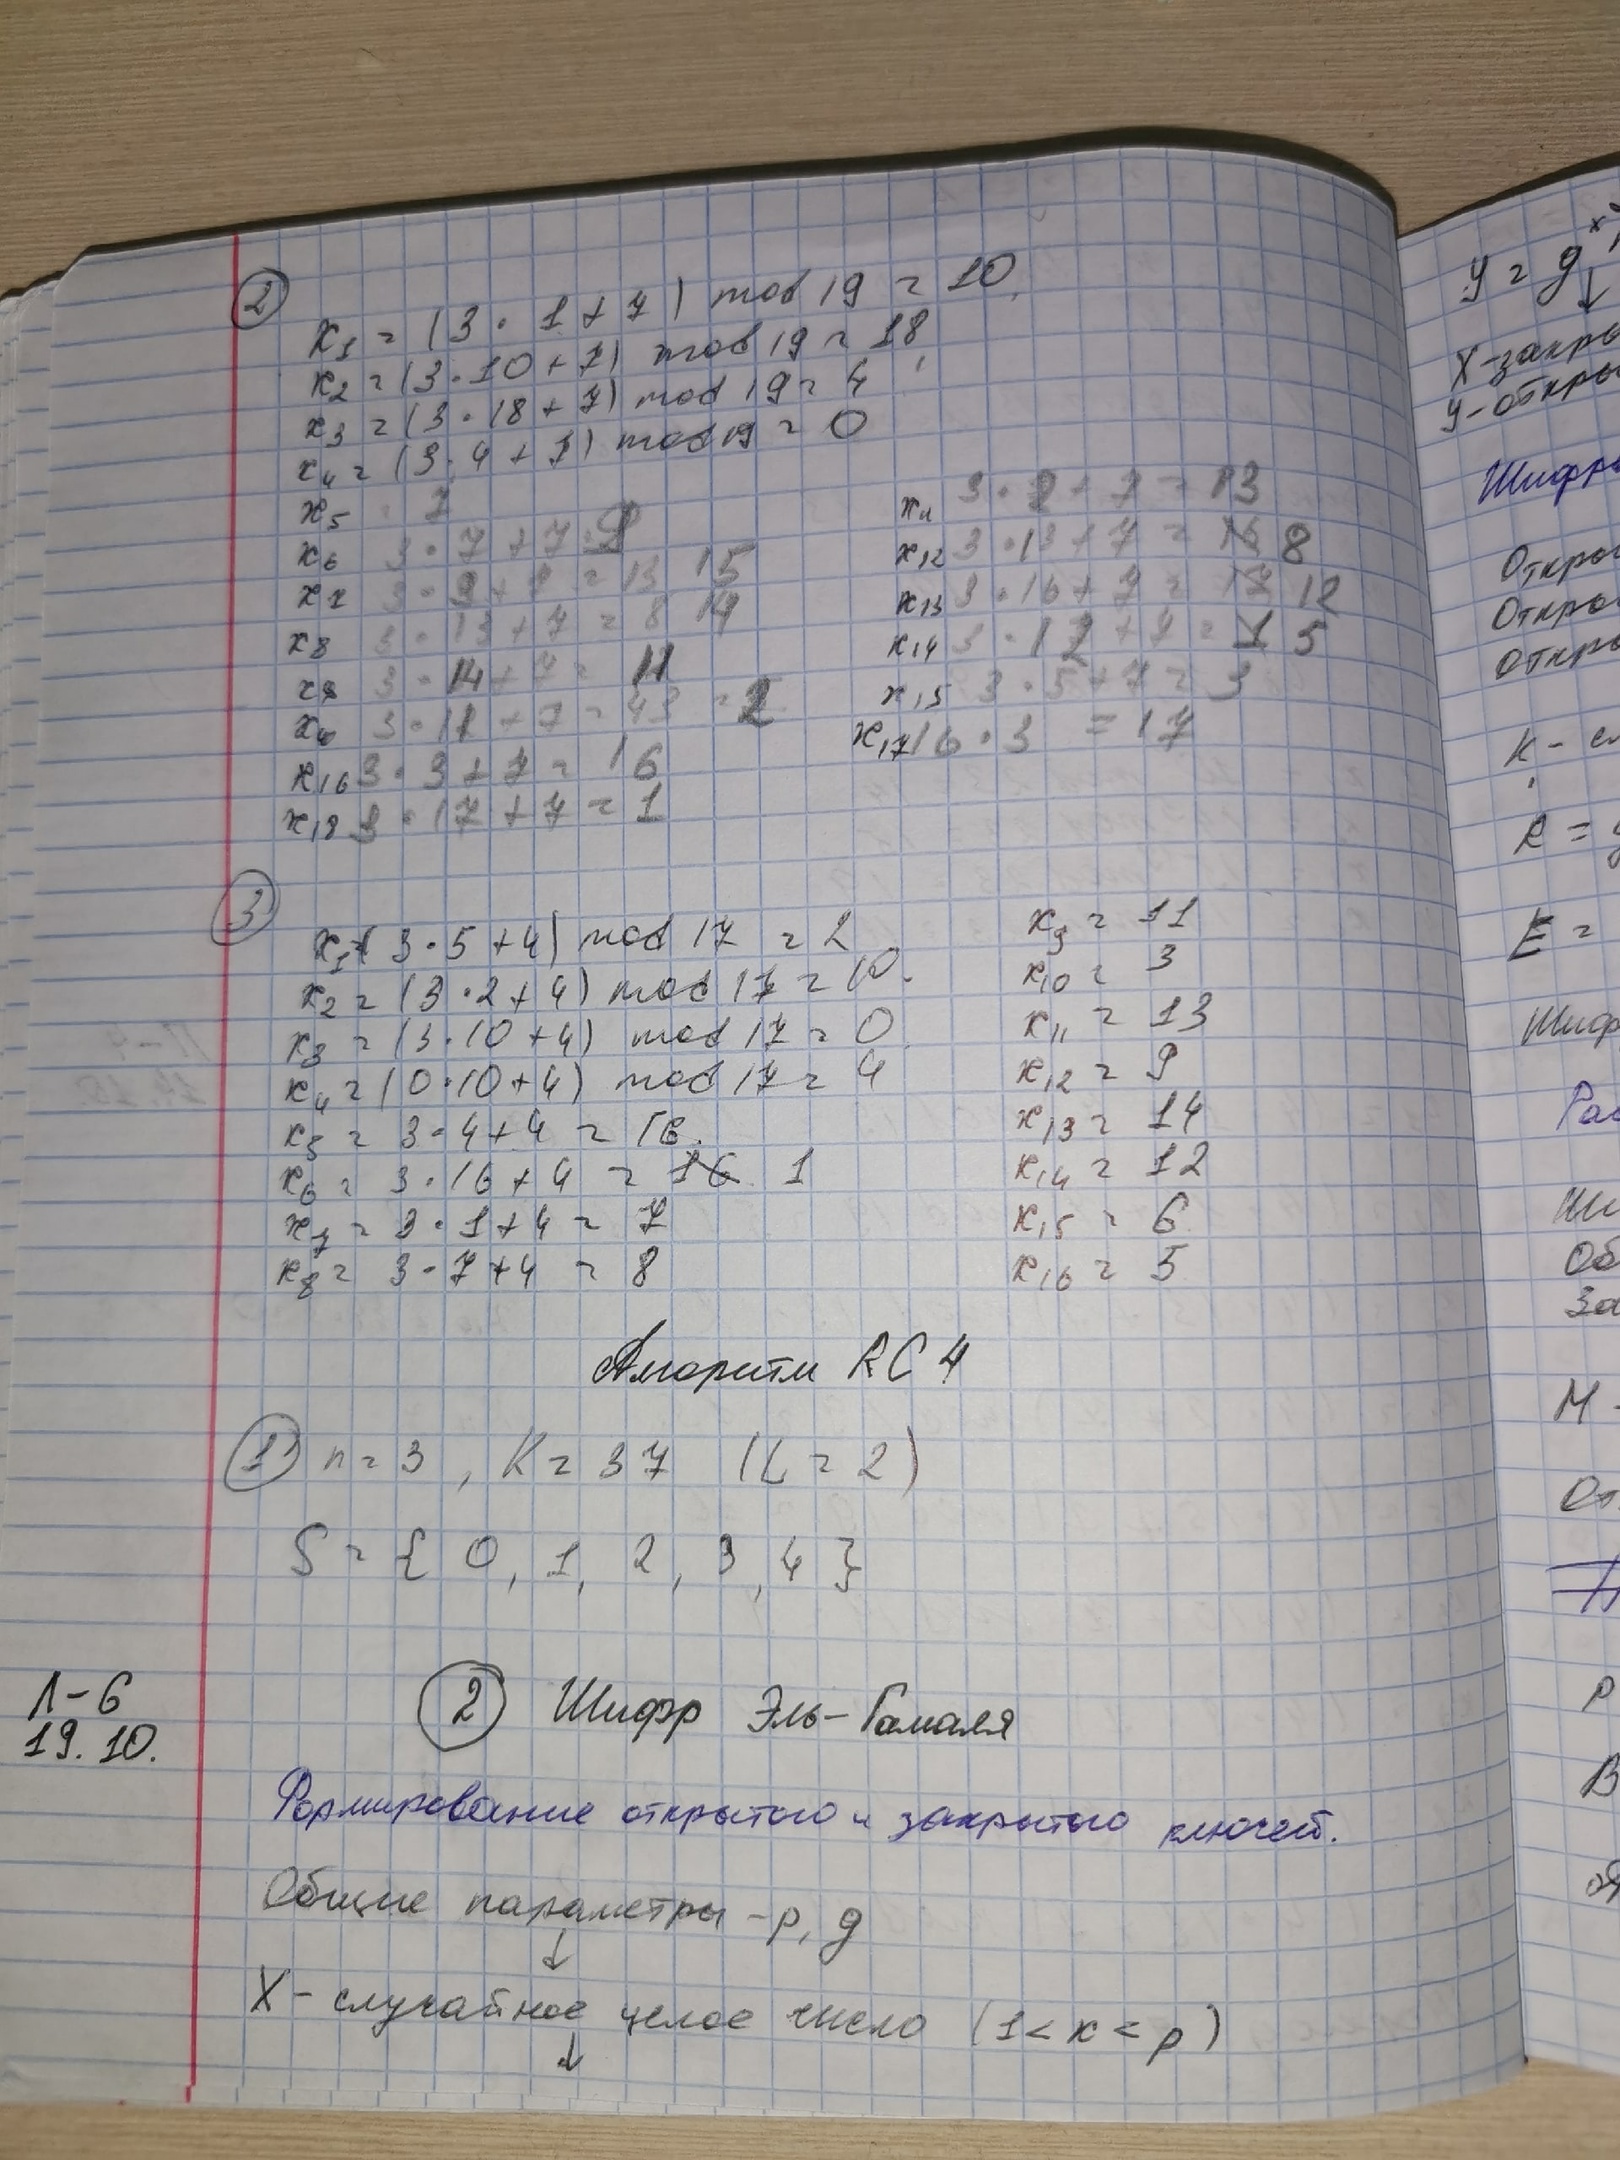 2
x₁ = (3·1+7) mod 19 = 10,
x₂ = (3·10+7) mod 19 = 18,
x₃ = (3·18+7) mod 19 = 4
x₄ = (3·4+7) mod 19 = 0
x₅ = 7
x₆ 3·7+7
x₇ = 13 15
x₈ 3·13+7 = 8 14
x₉ 3·14+7 = 11
3·11+7=43 = 2
x₁₆ 3·3+7 = 16
x₁₈ 3·17+7 = 1
x₁₁ 3·2+7 = 13
x₁₂ 3·13+7 = 8
x₁₃ 3·16+7 = 12
x₁₄ 3·12+7 = 5
x₁₅ 3·5+7 = 3
x₁₇ 16·3 = 17
3
x₁ = (3·5+4) mod 17 = 2
x₂ = (3·2+4) mod 17 = 10.
x₃ = (3·10+4) mod 17 = 0
x₄ = (0·10+4) mod 17 = 4
x₅ = 3·4+4 = 16.
x₆ = 3·16+4 = 16 1
x₇ = 3·1+4 = 7
x₈ = 3·7+4 = 8
x₉ = 11
x₁₀ = 3
x₁₁ = 13
x₁₂ = 9
x₁₃ = 14
x₁₄ = 12
x₁₅ = 6
x₁₆ = 5
Алгоритм RC4
1 n=3, K=37 (L=2)
S = { 0, 1, 2, 3, 4 }
Л-6
19.10.
2 Шифр Эль-Гамаля
Формирование открытого и закрытого ключей.
Общие параметры - p, g
↓
X - случайное целое число (1<x<p)
↓
y = g
↓
X-закры
y-откры
Шифры
Откры
Откры
Откры
k - сл
R =
E =
Шиф
Рас
Ши
Об
За
M -
От
P
В